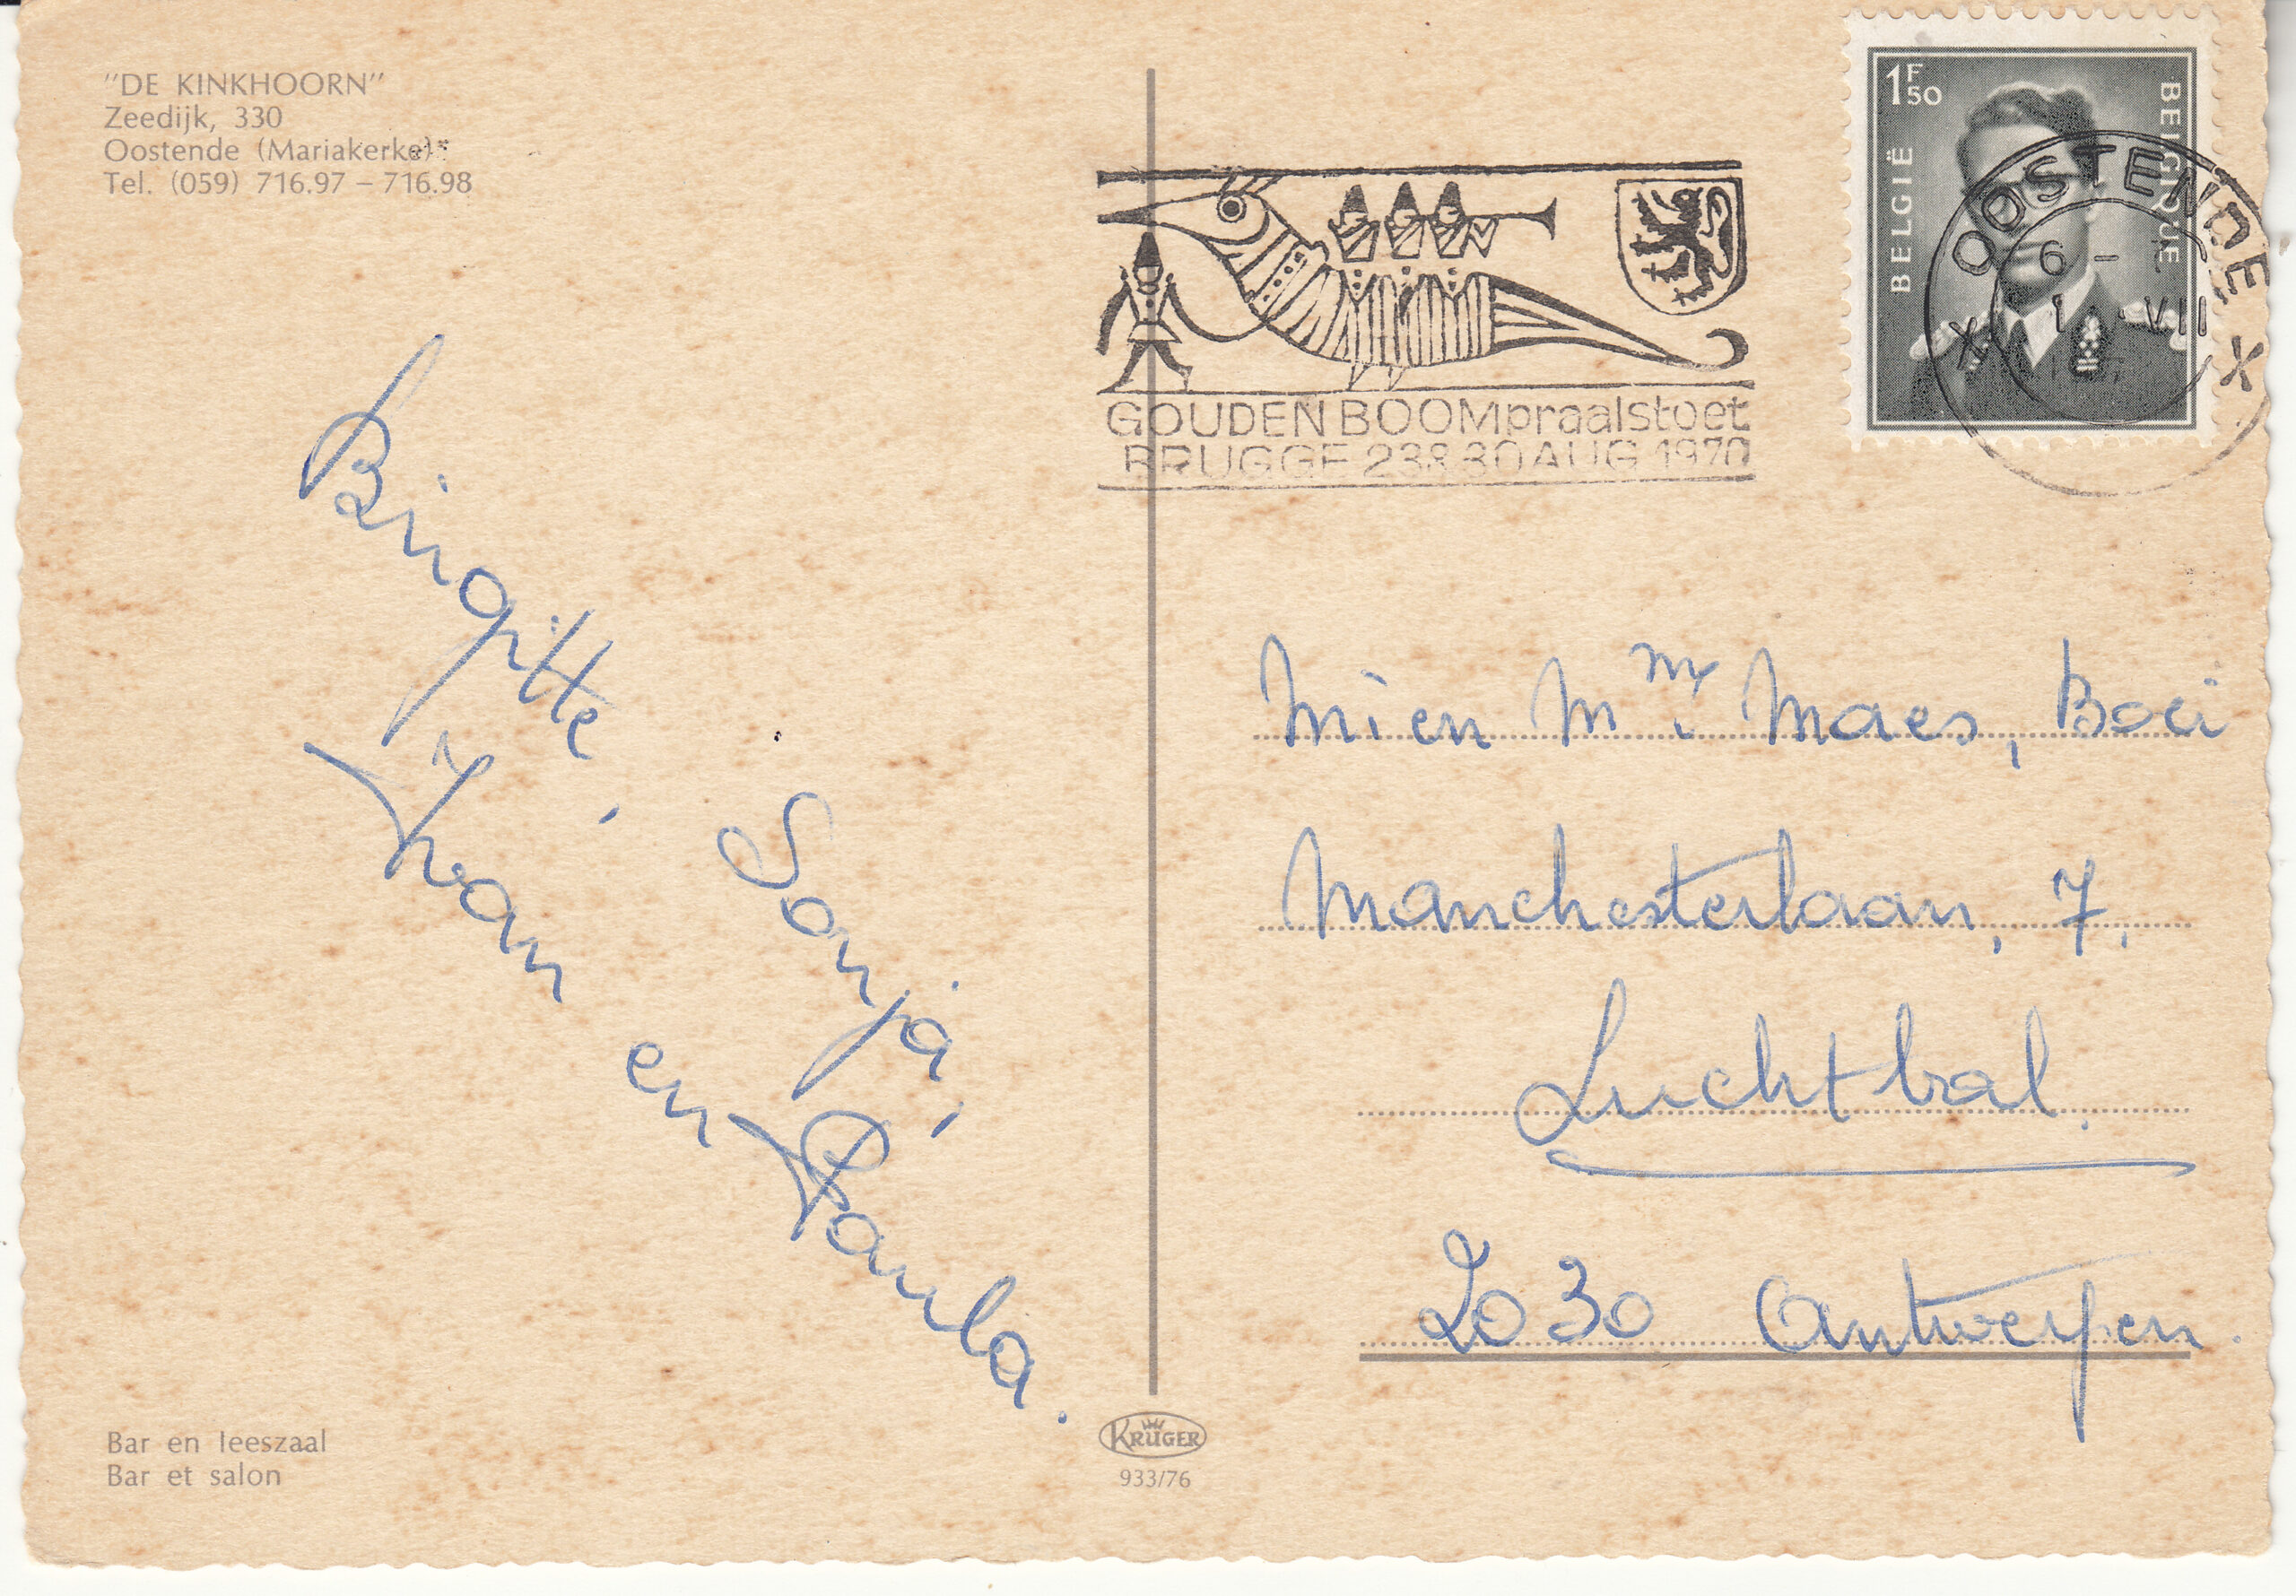 "DE KINKHOORN"
Zeedijk, 330
Oostende (Mariakerke)
Tel. (059) 716.97 – 716.98
1F50
BELGIË
BELGIQUE
OOSTENDE
6 –
1 VII
X X
GOUDEN BOOMpraalstoet
BRUGGE 23& 30 AUG 1970
Brigitte,
Sonja,
Ivan en Paula.
Maes,
Manchesterlaan, 7,
Luchtbal.
2030 Antwerpen.
Bar en leeszaal
Bar et salon
KRÜGER
933/76